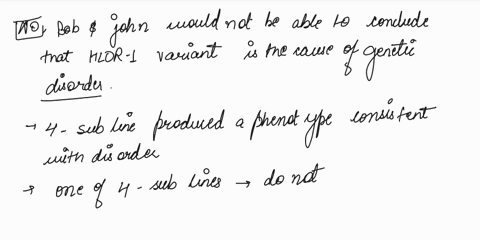 NO, Bob & john would not be able to conclude
that HLDR-1 variant is the cause of genetic
disorder.
→ 4-sub line produced a phenotype consistent
with disorder
→ one of 4-sub lines → do not